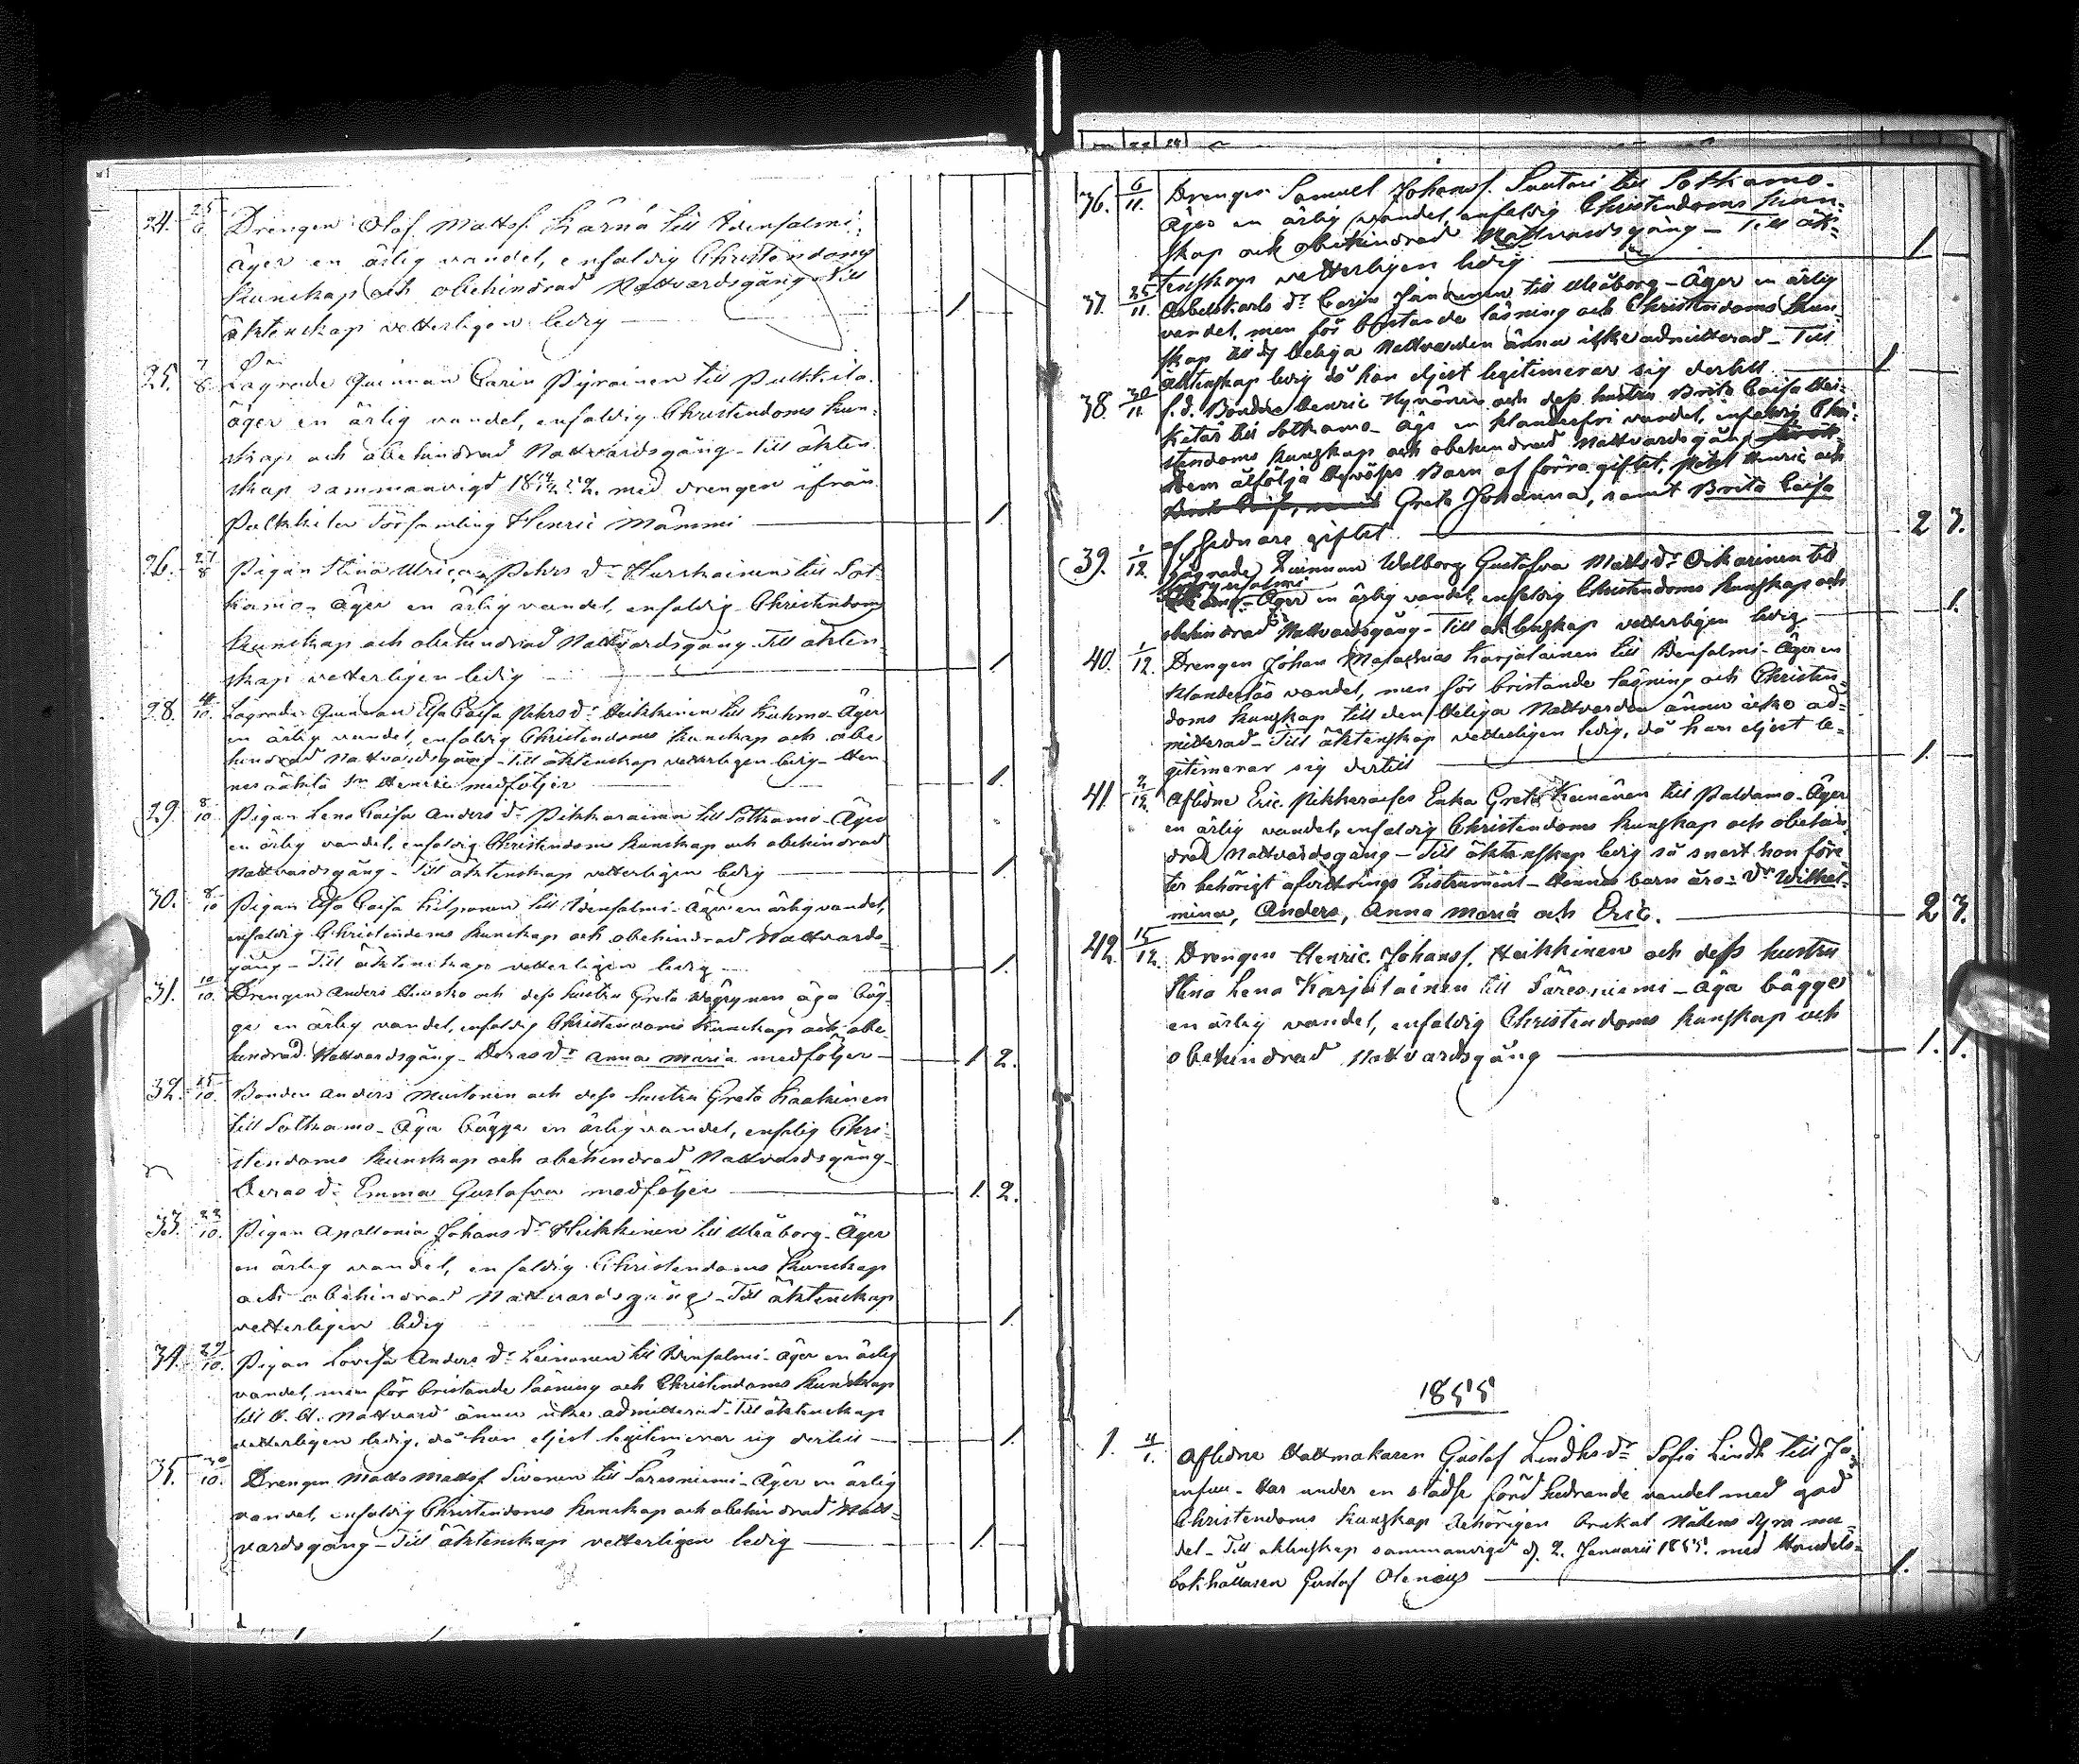 24. 25/6 Drengen Olof Mattsf. Kärnä till Idensalmi;
äger en ärlig vandel, enfaldig Christendoms
kunskap och obehindrad Nattvardsgång. Till
äktenskap vetterligen ledig 1.
25. 7/8 Lägrade Quinnan Carin Pyroinen till Pulkkila.
äger en ärlig vandel, enfaldig Christendoms kun-
skap och obehindrad Nattvardsgång. Till äkten-
skap sammanvigd med drengen ifrån
Pulkkila Församling Henric Mämmi 1.
26. 27/8 Pigan Stina Ulrica Pehrs dr Hurskainen till Sot-
kamo. Äger en ärlig vandel, enfaldig Christendoms
kunskap och obehindrad Nattvardsgång. Till äkten-
skap vetterligen ledig 1.
28. 4/10. Lägrade Quinnan Elsa Caisa Pehrs dr Heikkinen till Kuhmo. Äger
en ärlig vandel, enfaldig Christendoms kunskap och obe-
hindrad Nattvardsgång. Till äktenskap vetterligen ledig. Hen-
nes oäkta Sn Henric medföljer 1.
29. 8/10 Pigan Lena Caisa Anders dr Pikkarainen till Sotkamo. Äger
en ärlig vandel, enfaldig Christendoms kunskap och obehindrad
Nattvardsgång. Till äktenskap vetterligen ledig 1.
30. 8/10 Pigan Elsa Caisa Kilponen till Idensalmi. Äger en ärlig vandel,
enfaldig Christendoms kunskap och obehindrad Nattvards-
gång. Till äktenskap vetterligen ledig 1.
31. 10/10. Drengen Anders och dess hustru Greta äga båg-
ge en ärlig vandel, enfaldig Christendoms kunskap och obe-
hindrad Nattvardsgång. Deras dr Anna Maria medföljer 1 2.
32. 15/10. Bonden Anders Mustonen och dess hustru Greta Kaakinen
till Sotkamo. Äga bägge en ärlig vandel, enfalig Chri-
stendoms kunskap och obehindrad Nattvardsgång.
Deras dr Emma Gustafva medföljer 1. 2.
33. 22/10. Pigan Apollonia Johans dr Heikkinen till Uleåborg. Äger
en ärlig vandel, enfaldig Christendoms kunskap
och obehindrad Nattvardsgång. Till äktenskap
vetterligen ledig 1.
34. 29/10. Pigan Lovisa Anders dr Leinonen till Idensalmi. Äger en ärlig
vandel, men för bristande läsning och Christendoms kunskap
till H. H. Nattvard ännu icke admitterad. Till äktenskap
vetterligen ledig, då hon eljest legitimerar sig dertill 1.
35. 30/10. Drengen Matts Mattsf Sivonen till Säresniemi. Äger en ärlig
vandel, enfaldig Christendoms kunskap och obehindrad Natt-
vardsgång. Till äktenskap vetterligen ledig 1.
36. 6/11. Drengen Samuel Johansf. Sutari till Sotkamo.
Äger en ärlig vandel, enfaldig Christendoms kun-
skap och obehindrad Nattvardsgång. Till äk-
tenskap vetterligen ledig 1
37. 25/11. Arbetskarls dr Carin till Uleåborg. Äger en ärlig
vandel, men för bristande läsning och Christendoms kun-
skap till dy Heliga Nattvarden ännu icke admitterad. Till
äktenskap ledig då hon eljest legitimerar sig dertill 1
38. 30/11. f.d. Bonden Henric Hyvönen och dess hustru Brita Caisa Hei-
till Sotkamo. Äga en klanderfri vandel, enfaldig Chri-
stendoms kunskap och obehindrad Nattvardsgång
Dem åtfölja Barn af förra giftet, Pehr Henric och
Greta Johanna, samt Brita Caisa
af sednare giftet. 2 3.
39. 1/12. Lägrade Quinnan Walborg Gustafva Matts dr Oikarinen till
Äger en ärlig vandel, enfaldig Christendoms kunskap och
obehindrad Nattvardsgång. Till äktenskap vetterligen ledig 1.
40. 1/12. Drengen Johan Karjalainen till Idensalmi. Äger en
klanderlös vandel, men för bristande läsning och Christen-
doms kunskap till den Heliga Nattvarden ännu icke ad-
mitterad. Till äktenskap vetterligen ledig, då han eljest le-
gitimerar sig dertill 1.
41. 2/12. Aflidne Eric Pikkaraises Enka Greta Keinänen till Paldamo. Äger
en ärlig vandel, enfaldig Christendoms kunskap och obehin-
drad Nattvardsgång. Till äktenskap ledig så snart hon före-
ter behörigt afvittrings Instrument. Hennes barn äro: dr Wilhel-
mina, Anders, Anna Maria och Eric. 2 3.
42. 15/12. Drengen Henric Johansf. Heikkinen och dess hustru
Stina Lena Karjalainen till Säresniemi. Äga bägge
en ärlig vandel, enfaldig Christendoms kunskap och
obehindrad Nattvardsgång 1. 1.
1855
1. 4/1. Aflidne Hattmakaren Gustaf Lindhs dr Sofia Lindh till Jo-
ensuu. Har under en städse förd hedrande vandel med god
Christendoms kunskap behörigen brukat Nådens dyra me-
del. Till äktenskap sammanvigd d. 2. Januarii 1855. med Handels-
bokhållaren Gustaf
1.